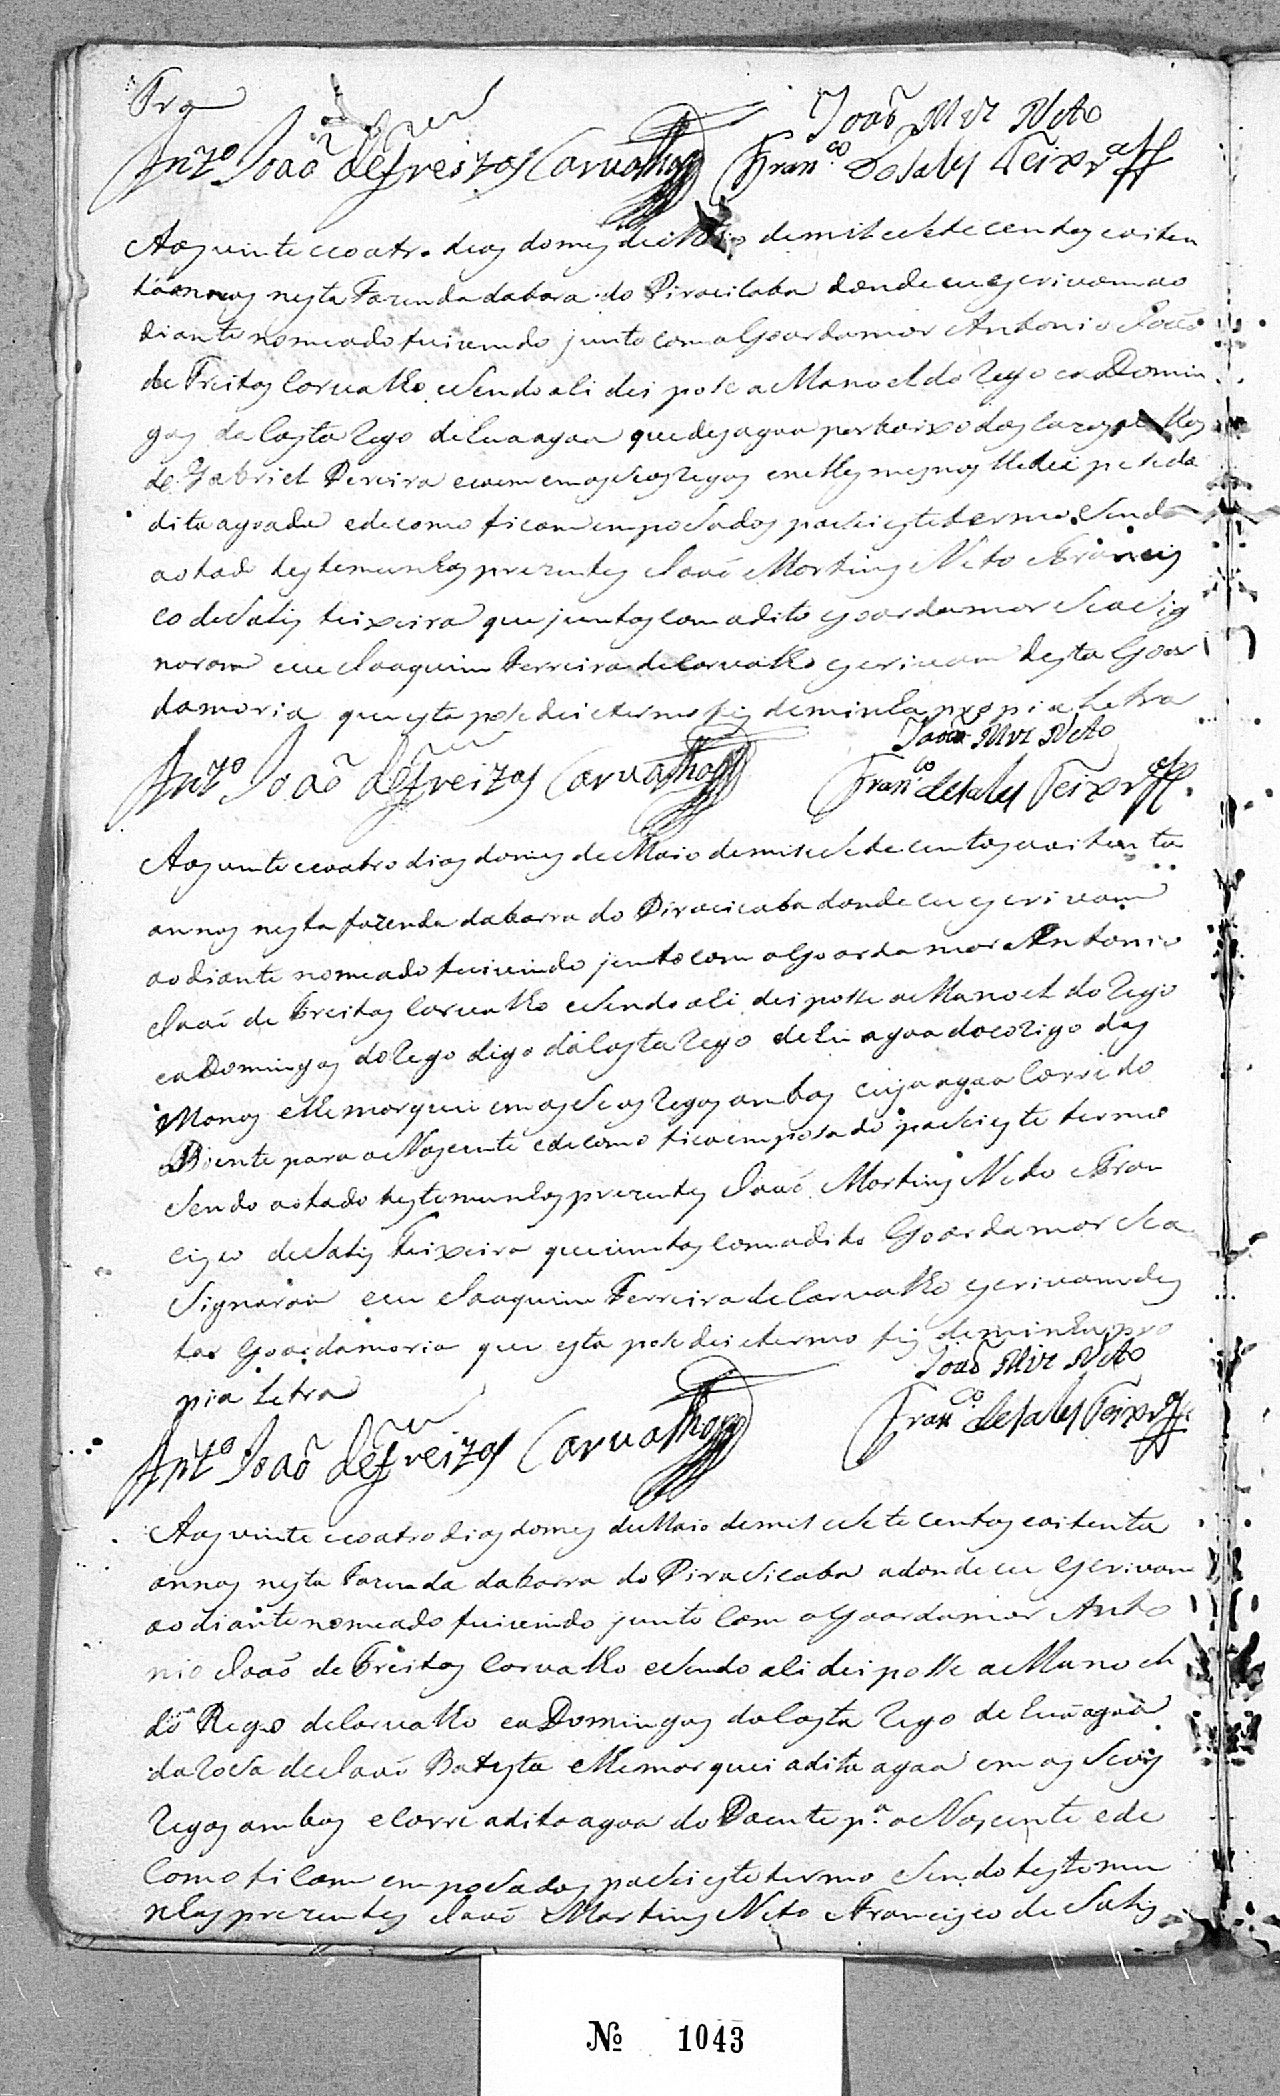 Tra
João Mrz Neto
Antº João de Freitas Carvalho Franco de Sales Teixra
Aos vinte ecoatro dias domes de Maio demil esetecentos eoiten
ta annos nesta Fazenda dabara do Piracicaba donde eu escrivam ao
diante nomeado fui vindo junto com o Goardamor Antonio João
de Freitas Carvalho eSendo ali dei pose a Manoel do Rego ea Domin
gos da Costa Rego de hua agoa que desagoa por baixo das
de Gabriel Pereira eoem emos Seos regos enelles mesmos lhe dei pose da
dita agoada ede como ficam emposados pasei este termo Sendo
aotado testemunhas prezentes João Martins Neto eFrancis
co de Salis teixeira que juntos com o dito goardamor Se aSig
naram eeu Joaquim Ferreira de Carvalho escrivam desta Goar
damoria que esta pose dei etermo fis deminha propia Letra
João Mrz Neto
Antº João de Freitas Carvalho Franco de Sales Teixra
Aos vinte ecoatro dias domes de Maio demil eSetecentos eoitenta
annos nesta fazenda dabarra do Piracicaba donde eu escrivam
ao diante nomeado fui vindo junto com o Goardamor Antonio
João de Freitas Carvalho eSendo ali dei posse a Manoel do Rego
ea Domingos do Rego digo da Costa Rego de hũ agoa do corigo das
Monos elhe marquei emos Seos Regos ambos cuja agoa Corre do
Poente para o Nascente ede como fica emposado pasei este termo
Sendo aotado testemunhas prezentes João Martins Neto eFran
cisco de Salis Teixeira que juntos com o dito Goardamor Se a
Signaram eeu Joaquim Ferreira de Carvalho escrivam des
ta Goardamoria que esta pose dei etermo fis deminha pro
João Mrz Neto
pia Letra
Antº João de Freitas Carvalho Franco de Sales Teixra
Aos vinte ecoatro dias domes de Maio demil eSete centos eoitenta
annos nesta Fazenda dabarra do Piracicaba adonde eu escrivam
ao diante nomeado fui vindo junto Com o Goardamor Anto
nio João de Freitas Carvalho eSendo ali dei posse a Manoel
do Rego de Carvalho ea Domingos da Costa Rego de hũa agoa
da Rosa de João Batysta elhe marquei adita agoa emos Seos
Regos ambos eCorre adita agoa do Poente pª o Nascente ede
Como ficam emposados pasei este termo Sendo testemu
nhas prezentes João Martins Neto eFrancisco de Salis
Nº 1043